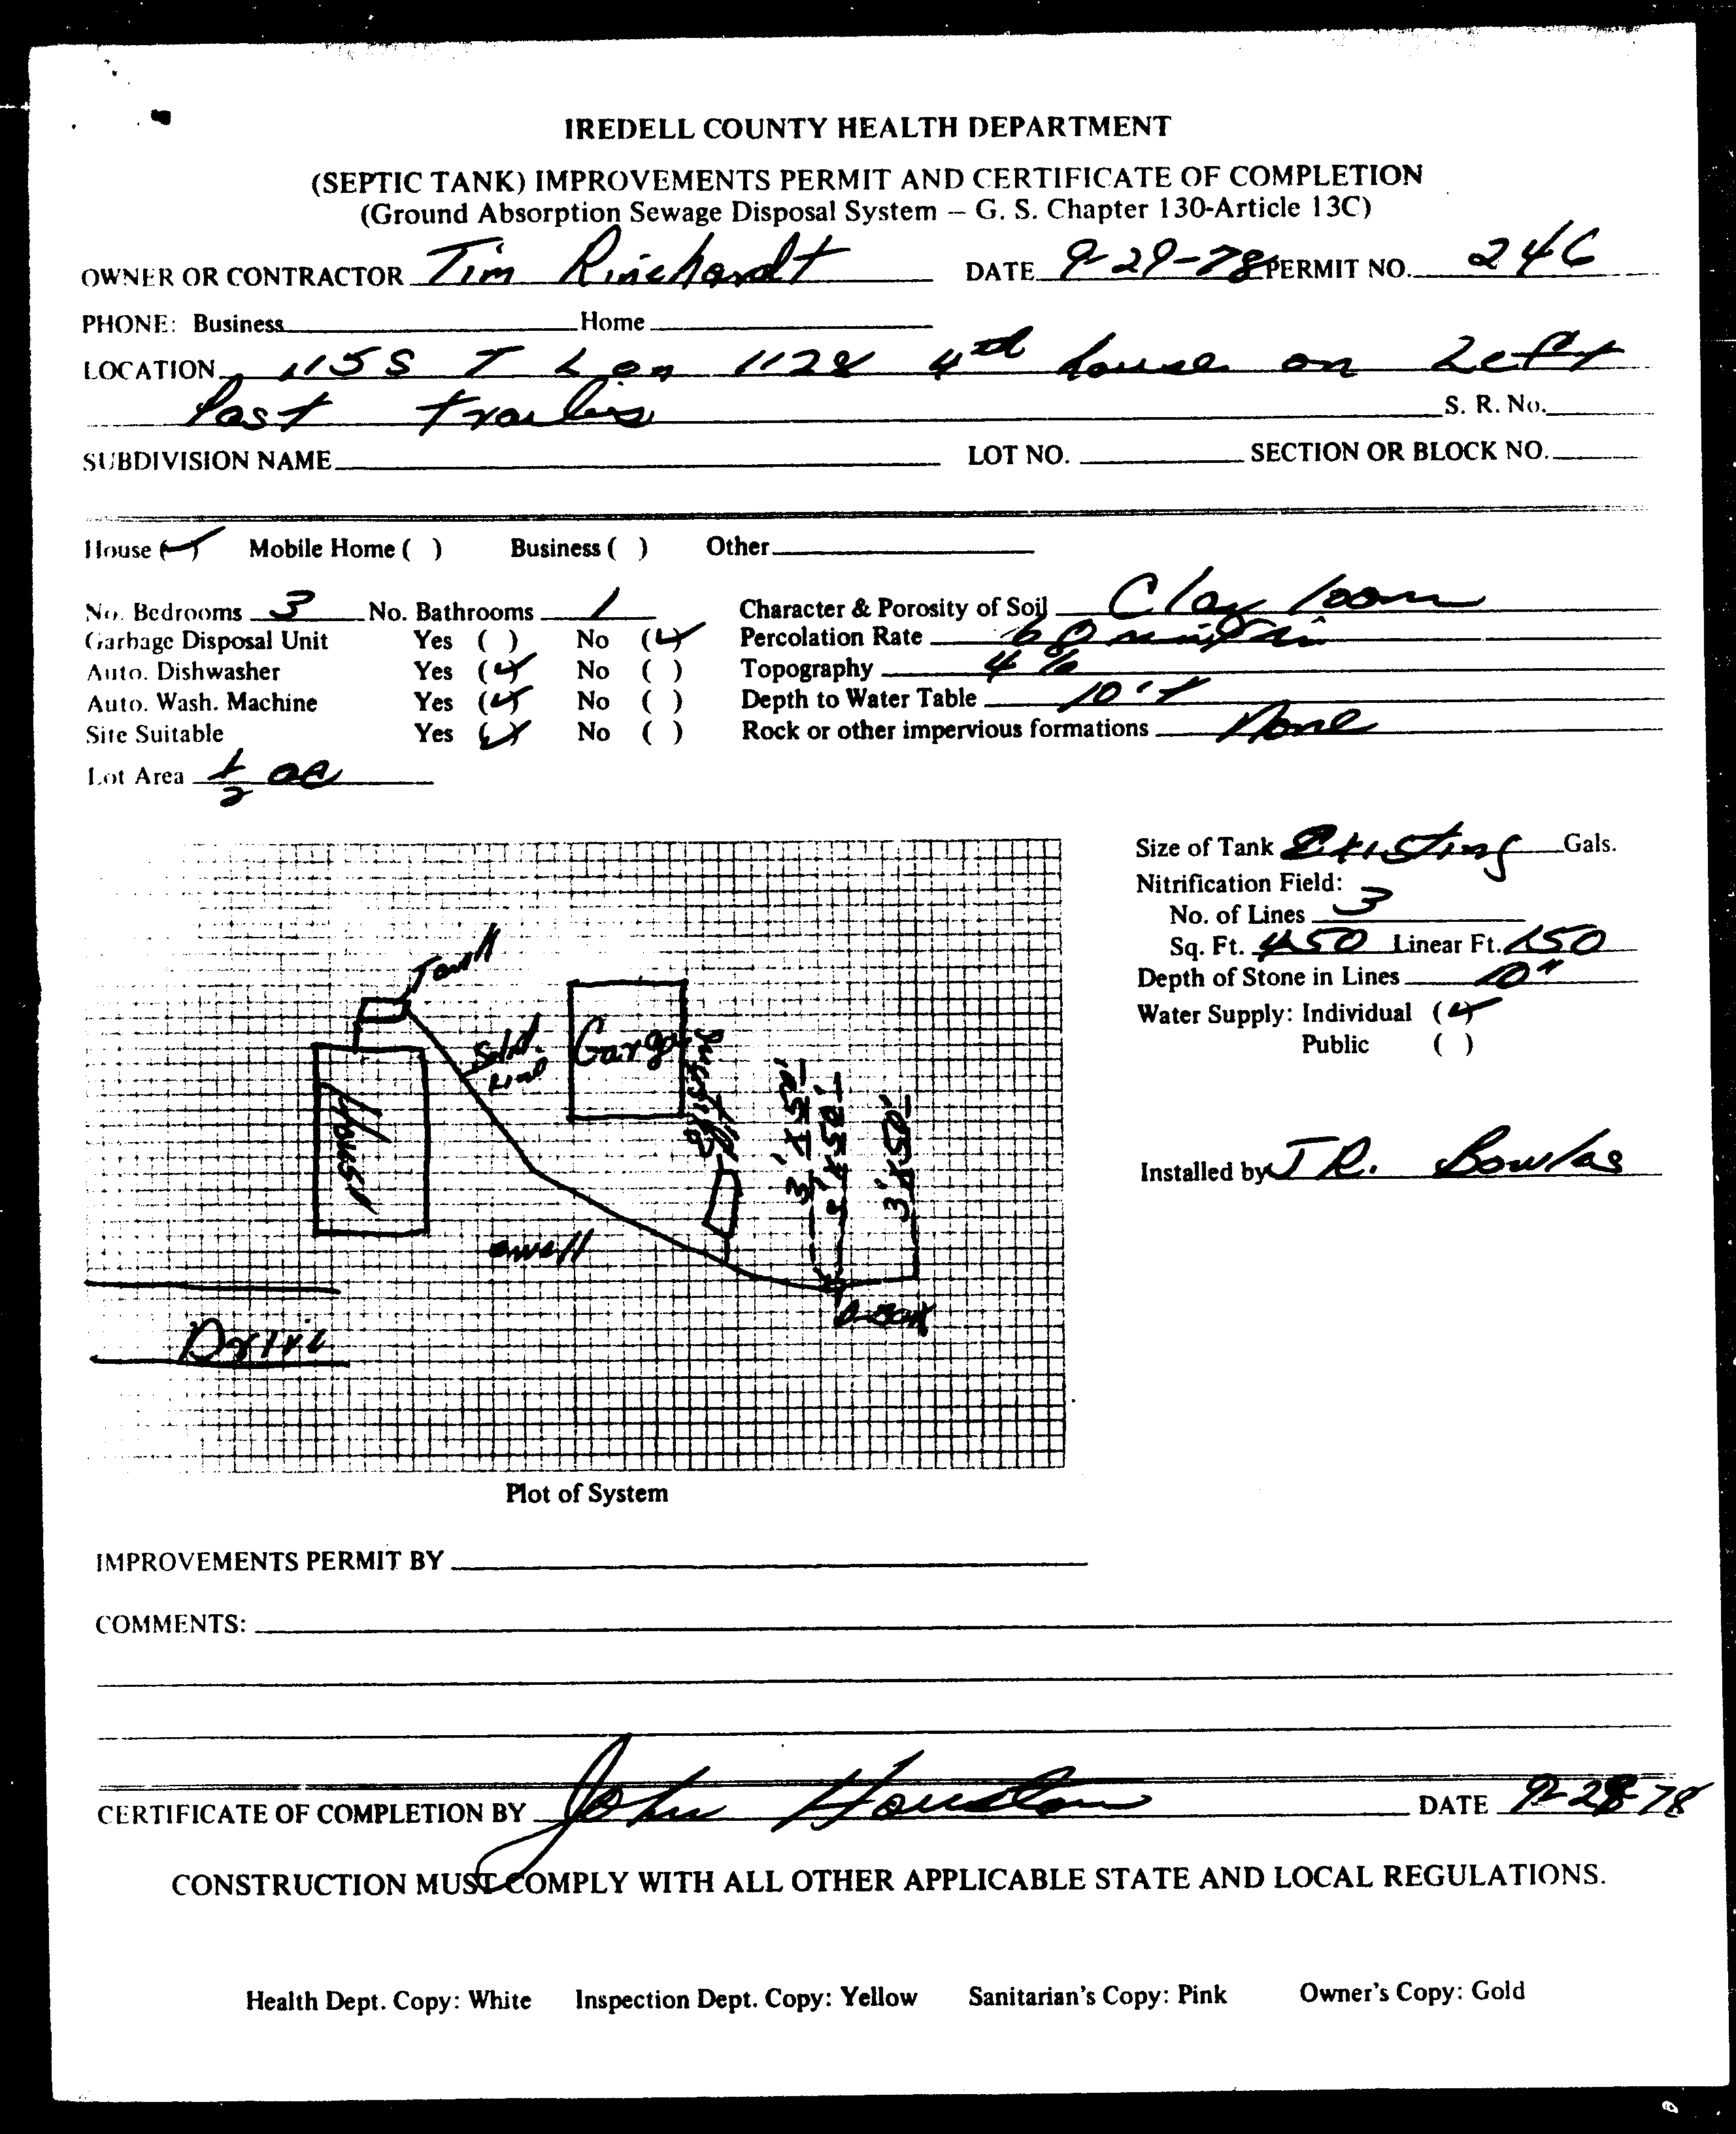 IREDELL COUNTY HEALTH DEPARTMENT
(SEPTIC TANK) IMPROVEMENTS PERMIT AND CERTIFICATE OF COMPLETION
(Ground Absorption Sewage Disposal System – G. S. Chapter 130-Article 13C)
OWNER OR CONTRACTOR Tim Rinehardt DATE 9-29-78 PERMIT NO. 246
PHONE: Business Home
LOCATION 115S T L on 1128 4th house on Left
Past S. R. No.
SUBDIVISION NAME LOT NO. SECTION OR BLOCK NO.
House ( ) Mobile Home ( ) Business ( ) Other
No. Bedrooms 3 No. Bathrooms 1 Character & Porosity of Soil Clay loam
Garbage Disposal Unit Yes ( ) No ( ) Percolation Rate 60 min/in
Auto. Dishwasher Yes ( ) No ( ) Topography 4%
Auto. Wash. Machine Yes ( ) No ( ) Depth to Water Table 10'+
Site Suitable Yes ( ) No ( ) Rock or other impervious formations None
Lot Area 1/2 ac
Size of Tank Existing Gals.
Nitrification Field:
No. of Lines 3
Sq. Ft. 450 Linear Ft. 150
Depth of Stone in Lines 10"
Water Supply: Individual ( )
Public ( )
Installed by J R. Bowlas
Tank
Solid Line
Garge
House
3'x50'
3'x50'
3'x50'
Drive
Plot of System
IMPROVEMENTS PERMIT BY
COMMENTS:
CERTIFICATE OF COMPLETION BY John Houston DATE 9-28-78
CONSTRUCTION MUST COMPLY WITH ALL OTHER APPLICABLE STATE AND LOCAL REGULATIONS.
Health Dept. Copy: White Inspection Dept. Copy: Yellow Sanitarian's Copy: Pink Owner's Copy: Gold